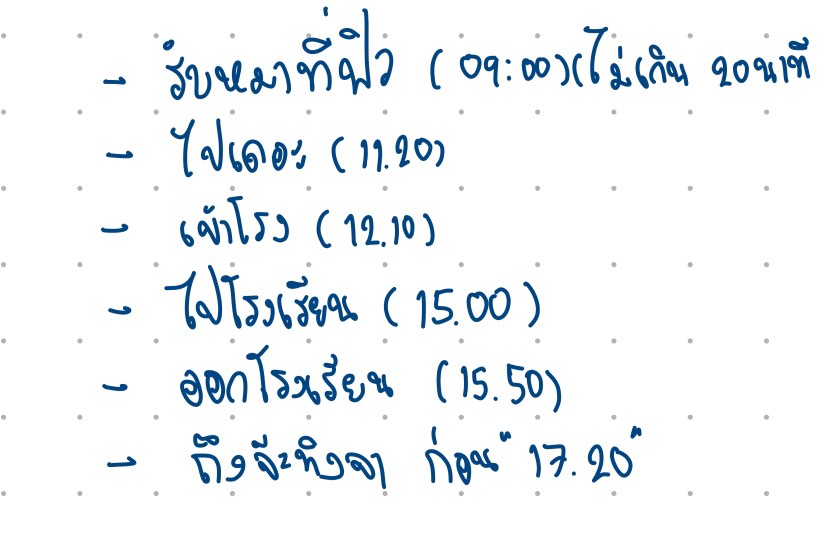 - รับหมาที่ฟิว (09:00)(ไม่เกิน 20นาที
- ไปเดอะ (11.20)
- เข้าโรง (12.10)
- ไปโรงเรียน (15.00)
- ออกโรงเรียน (15.50)
- ถึง ก่อน "17.20"